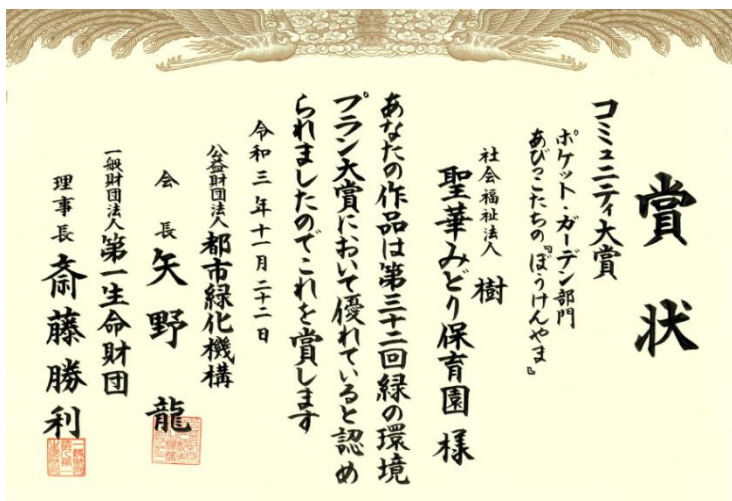 賞状
コミュニティ大賞
ポケット・ガーデン部門
あびっこたちの『ぼうけんやま』
社会福祉法人 樹
聖華みどり保育園 様
あなたの作品は第三十二回緑の環境
プラン大賞において優れていると認め
られましたのでこれを賞します
令和三年十一月二十二日
公益財団法人 都市緑化機構
会長 矢野 龍
一般財団法人 第一生命財団
理事長 斎藤勝利